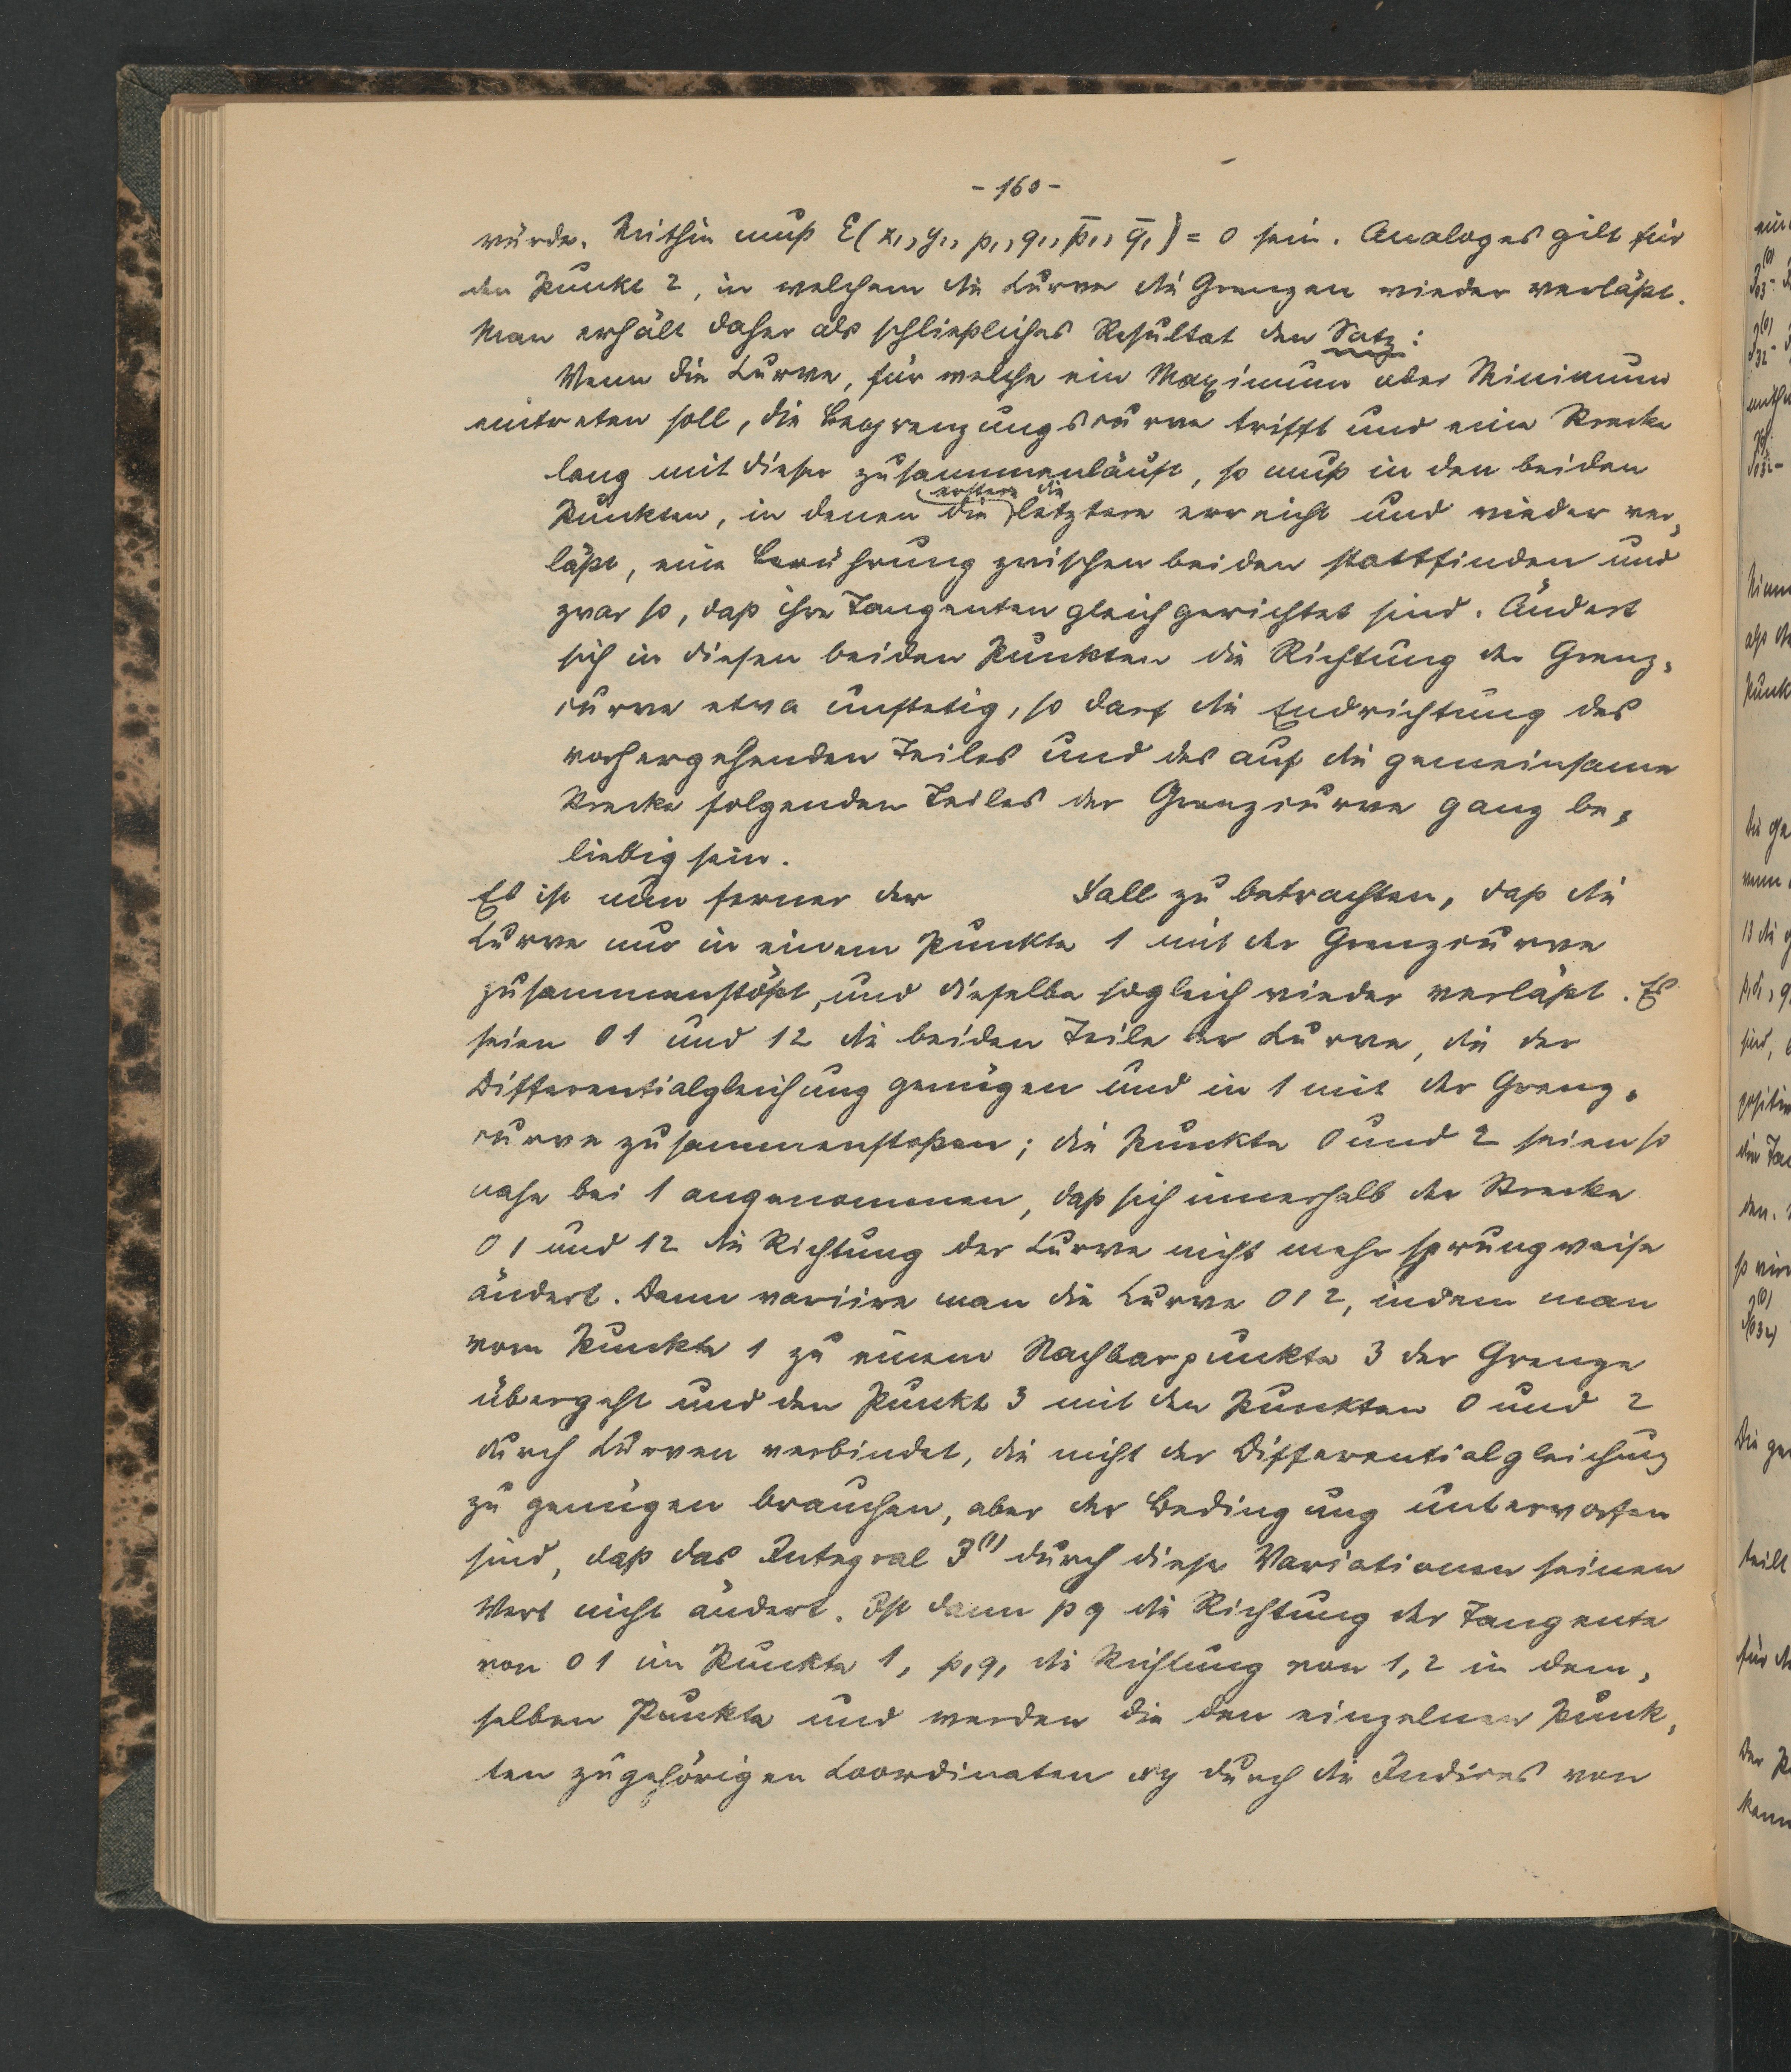 - 160 -
würde. Mithin muß ℰ(x₁, y₁, p₁, q₁, p̄₁, q̄₁) = 0 sein. Analoges gilt für
den Punkt 2, in welchem die Curve die Grenzen wieder verläßt.
Man erhält daher als schließliches Resultat den Satz:
Wenn die Curve, für welche ein Maximum oder Minimum
eintreten soll, die Begrenzungscurve trifft und eine Strecke
lang mit dieser zusammenläuft, so muß in den beiden
erstere die
Punkten, in denen die letztere erreicht und wieder ver-
läßt, eine Berührung zwischen beiden stattfinden und
zwar so, daß ihre Tangenten gleichgerichtet sind. Ändert
sich in diesen beiden Punkten die Richtung der Grenz-
curve etwa unstetig, so darf die Endrichtung des
vorhergehenden Teiles und des auf die gemeinsame
Strecke folgenden Teiles der Grenzcurve ganz be-
liebig sein.
Es ist nun ferner der Fall zu betrachten, daß die
Curve nur in einem Punkte 1 mit der Grenzcurve
zusammenstößt, und dieselbe sogleich wieder verläßt. Es
seien 01 und 12 die beiden Teile der Curve, die der
Differentialgleichung genügen und in 1 mit der Grenz-
curve zusammenstoßen; die Punkte 0 und 2 seien so
nahe bei 1 angenommen, daß sich innerhalb der Strecke
01 und 12 die Richtung der Curve nicht mehr sprungweise
ändert. Dann variire man die Curve 012, indem man
vom Punkte 1 zu einem Nachbarpunkte 3 der Grenze
übergeht und den Punkt 3 mit den Punkten 0 und 2
durch Curven verbindet, die nicht der Differentialgleichung
zu genügen brauchen, aber der Bedingung unterworfen
sind, daß das Integral J⁽¹⁾ durch diese Variationen seinen
Wert nicht ändert. Ist dann p q die Richtung der Tangente
von 01 im Punkte 1, p₁q₁ die Richtung von 1,2 in dem-
selben Punkte und werden die den einzelnen Punk-
ten zugehörigen Coordinaten xy durch die Indices von